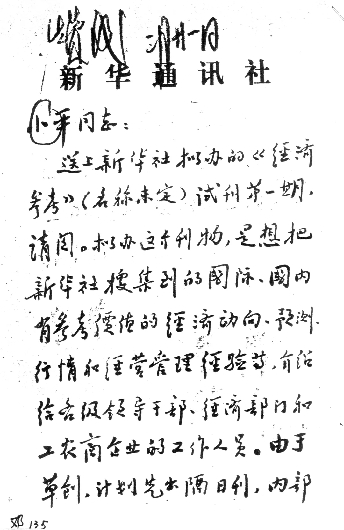 新华通讯社
小平同志：
送上新华社拟办的《经济
参考》（名称未定）试刊第一期，
请阅。拟办这个刊物，是想把
新华社搜集到的國际、國内
有参考價值的经济动向、预测、
行情和经营管理经验等，介绍
给各级领导干部、经济部门和
工农商企业的工作人员。由于
草创，计划先出隔日刊，内部
邓 135